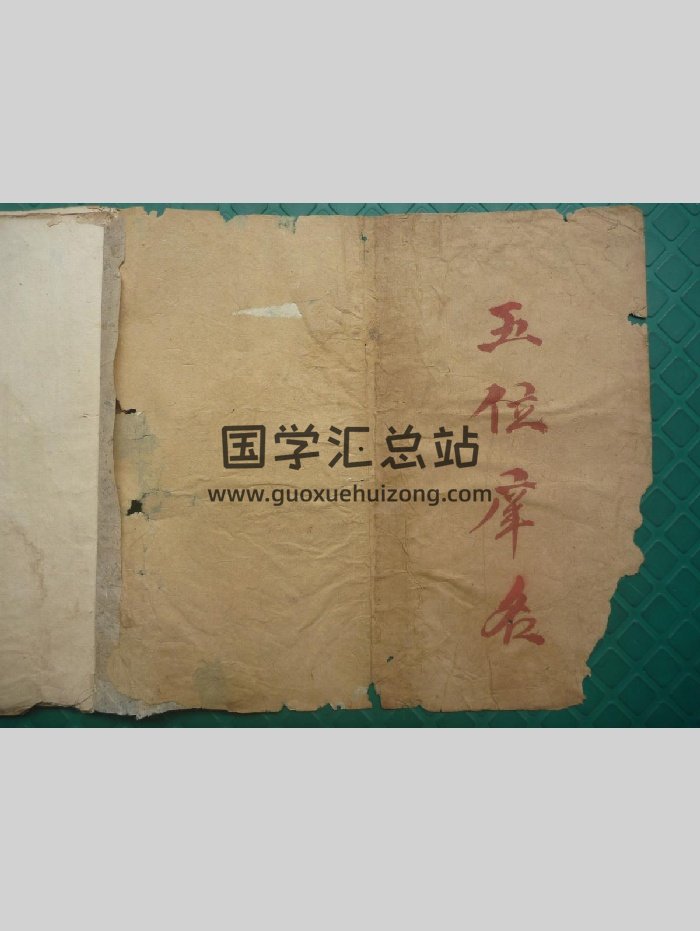 五位名
国学汇总站
www.guoxuehuizong.com